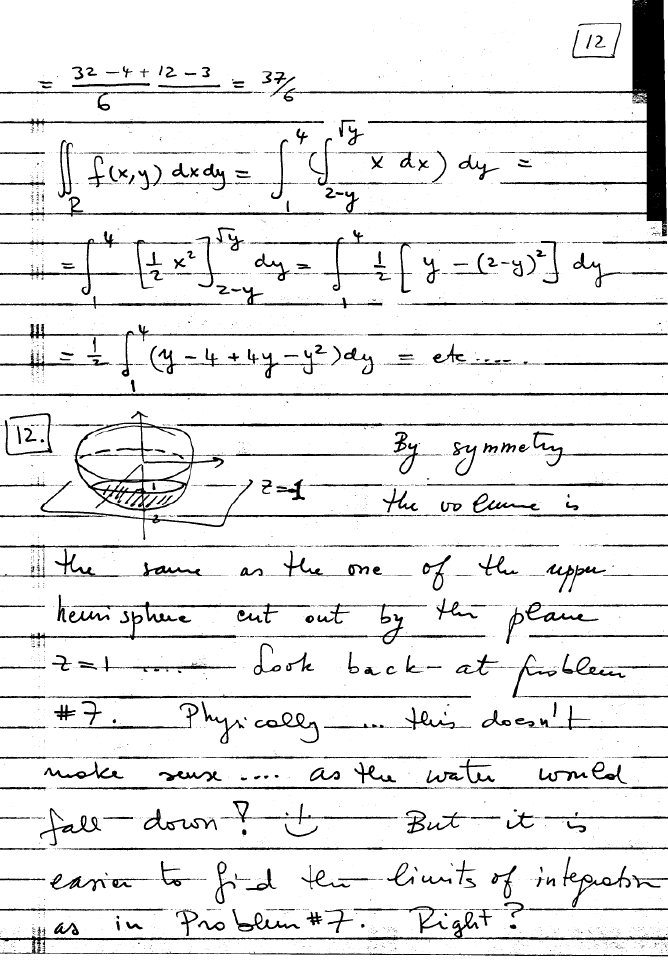 12
= (32 - 4 + 12 - 3)/6 = 37/6
∬_R f(x,y) dxdy = ∫_1^4 (∫_{2-y}^{√y} x dx) dy =
= ∫_1^4 [½ x²]_{2-y}^{√y} dy = ∫_1^4 ½ [y - (2-y)²] dy
= ½ ∫_1^4 (y - 4 + 4y - y²) dy = etc.....
12. By symmetry
1 z=-1 the volume is
2
the same as the one of the upper
hemisphere cut out by the plane
z=1 ..... Look back at problem
#7. Physically ... this doesn't
make sense .... as the water would
fall down! But it is
easier to find the limits of integration
as in Problem #7. Right?